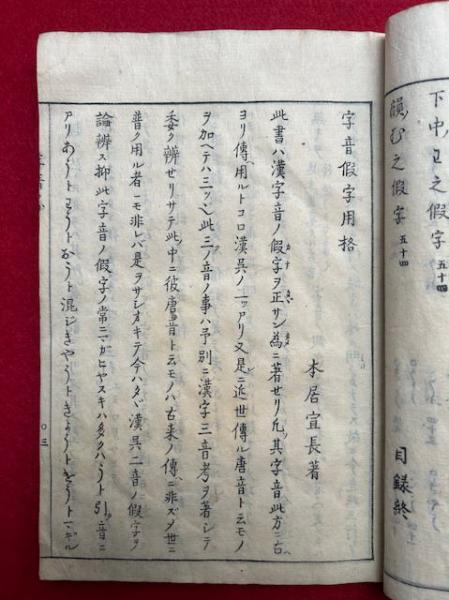 下中ヒ之假字 五十四
韻ム之假字 五十四
目録終
字音假字用格
本居宣長著
此書ハ漢字音ノ假字ヲ正サン為ニ著セリ凡ソ其字音此方ニ古ヘ
ヨリ傳ヘ用ルトコロ漢呉ノ二ツアリ又是ニ近世傳ル唐音ト云モノ
ヲ加ヘテハ三ツ也此三ノ音ノ事ハ予別ニ漢字三音考ヲ著シテ
委ク辨セリサテ此中ニ彼唐音ト云モノハ古来ノ傳ニ非ズ又世ニ
普ク用ル者ニモ非レバ是ヲサシオキテ今ハタヾ漢呉二音ノ假字ヲ
論辨ス抑此字音ノ假字ノ常ニマガヒヤスキハ多クハうト引ク音ニ
アリあうトわうトおうト混ジきやうトきようトけうトマギル